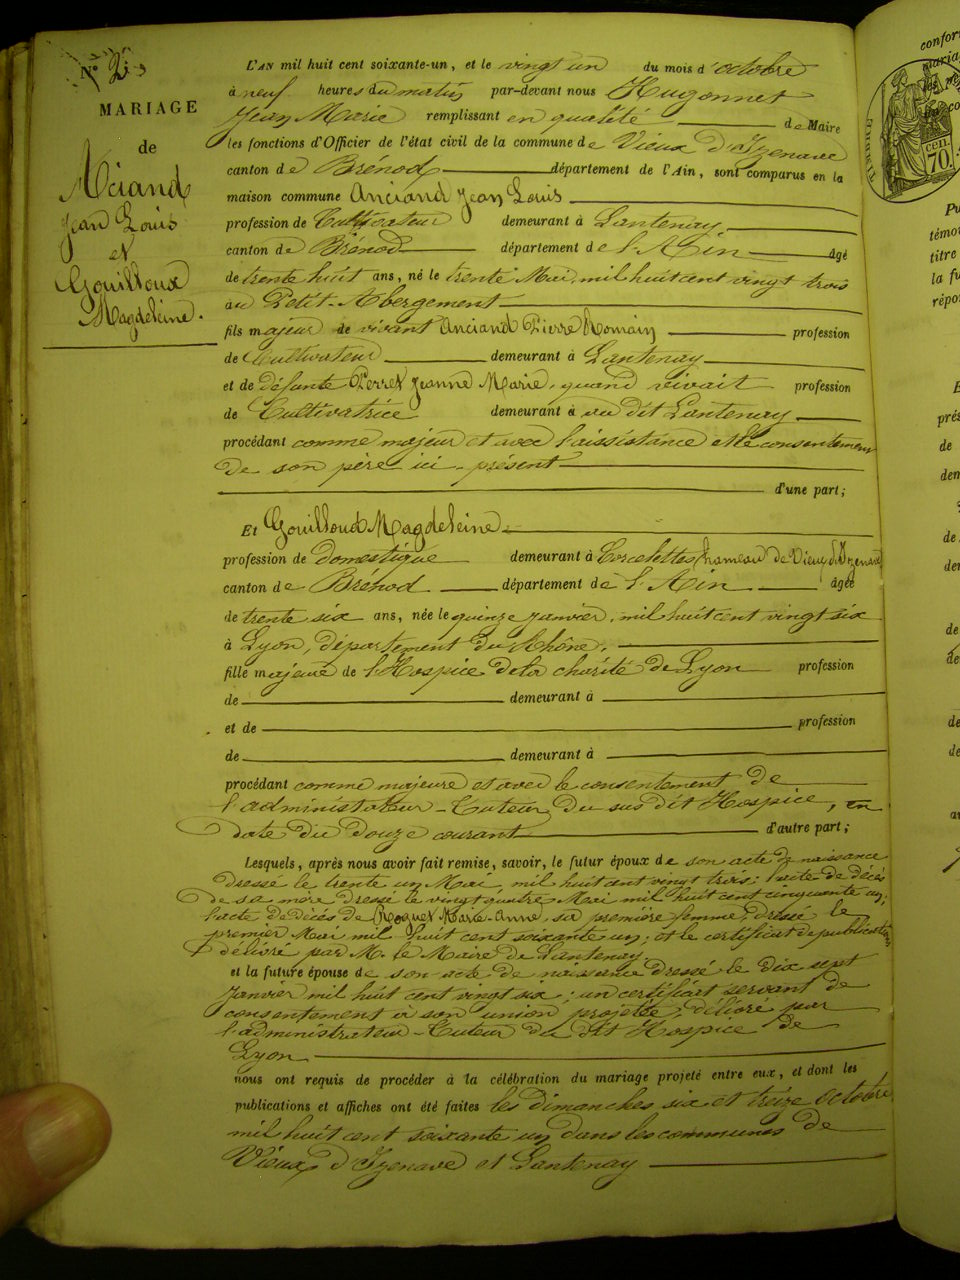 N° 2
MARIAGE
de
Anciand
Jean Louis
et
Gouilloux
Magdeleine.
L'AN mil huit cent soixante-un, et le vingt un du mois d'octobre
à neuf heures du matin par-devant nous Hugonnet
Jean Marie remplissant en qualité de Maire
les fonctions d'Officier de l'état civil de la commune de Vieux d'Izenave
canton de Brénod département de l'Ain, sont comparus en la
maison commune Anciand Jean Louis
profession de Cultivateur demeurant à Lantenay
canton de Brénod département de l'Ain âgé
de trente huit ans, né le trente Mai, mil huit cent vingt trois
au Petit-Abergement
fils majeur de vivant Anciand Pierre Romain profession
de Cultivateur demeurant à Lantenay
et de défunte Perret Jeanne Marie, quand vivait profession
de Cultivatrice demeurant à au dit Lantenay
procédant comme majeur et avec l'aissistance et le consentement
de son père ici présent
d'une part;
Et Gouilloud Magdeleine
profession de domestique demeurant à Corcelettes (hameau de Vieux d'Izenave)
canton de Brénod département de l'Ain âgée
de trente six ans, née le quinze janvier, mil huit cent vingt six
à Lyon, département du Rhône,
fille majeure de l'Hospice de la charité de Lyon profession
de demeurant à
et de profession
de demeurant à
procédant comme majeure et avec le consentement de
l'administateur-Tuteur du sus dit Hospice, en
date du douze courant d'autre part;
Lesquels, après nous avoir fait remise, savoir, le futur époux de son acte de naissance
dressé le trente un Mai, mil huit cent vingt trois; l'acte de décès
de sa mère dressé le vingt quatre Mai mil huit cent cinquante un;
l'acte de décès de Roguet Marie-Anne, sa première femme, dressé le
premier Mai mil huit cent soixante un; et le certificat de publication
délivré par M. le Maire de Lantenay.
et la future épouse de son acte de naissance dressé le dix sept
Janvier mil huit cent vingt six; un certificat servant de
consentement à son union projetée, délivré par
l'administrateur-Tuteur du dit Hospice de
Lyon
nous ont requis de procéder à la célébration du mariage projeté entre eux, et dont les
publications et affiches ont été faites les dimanches six et treize octobre
mil huit cent soixante un dans les communes de
Vieux d'Izenave et Lantenay
confor
maria
TIMBRE
cen.
70.
témoi
titre
la fu
répon
prés
de
dem
de
dem
de
de
de
de